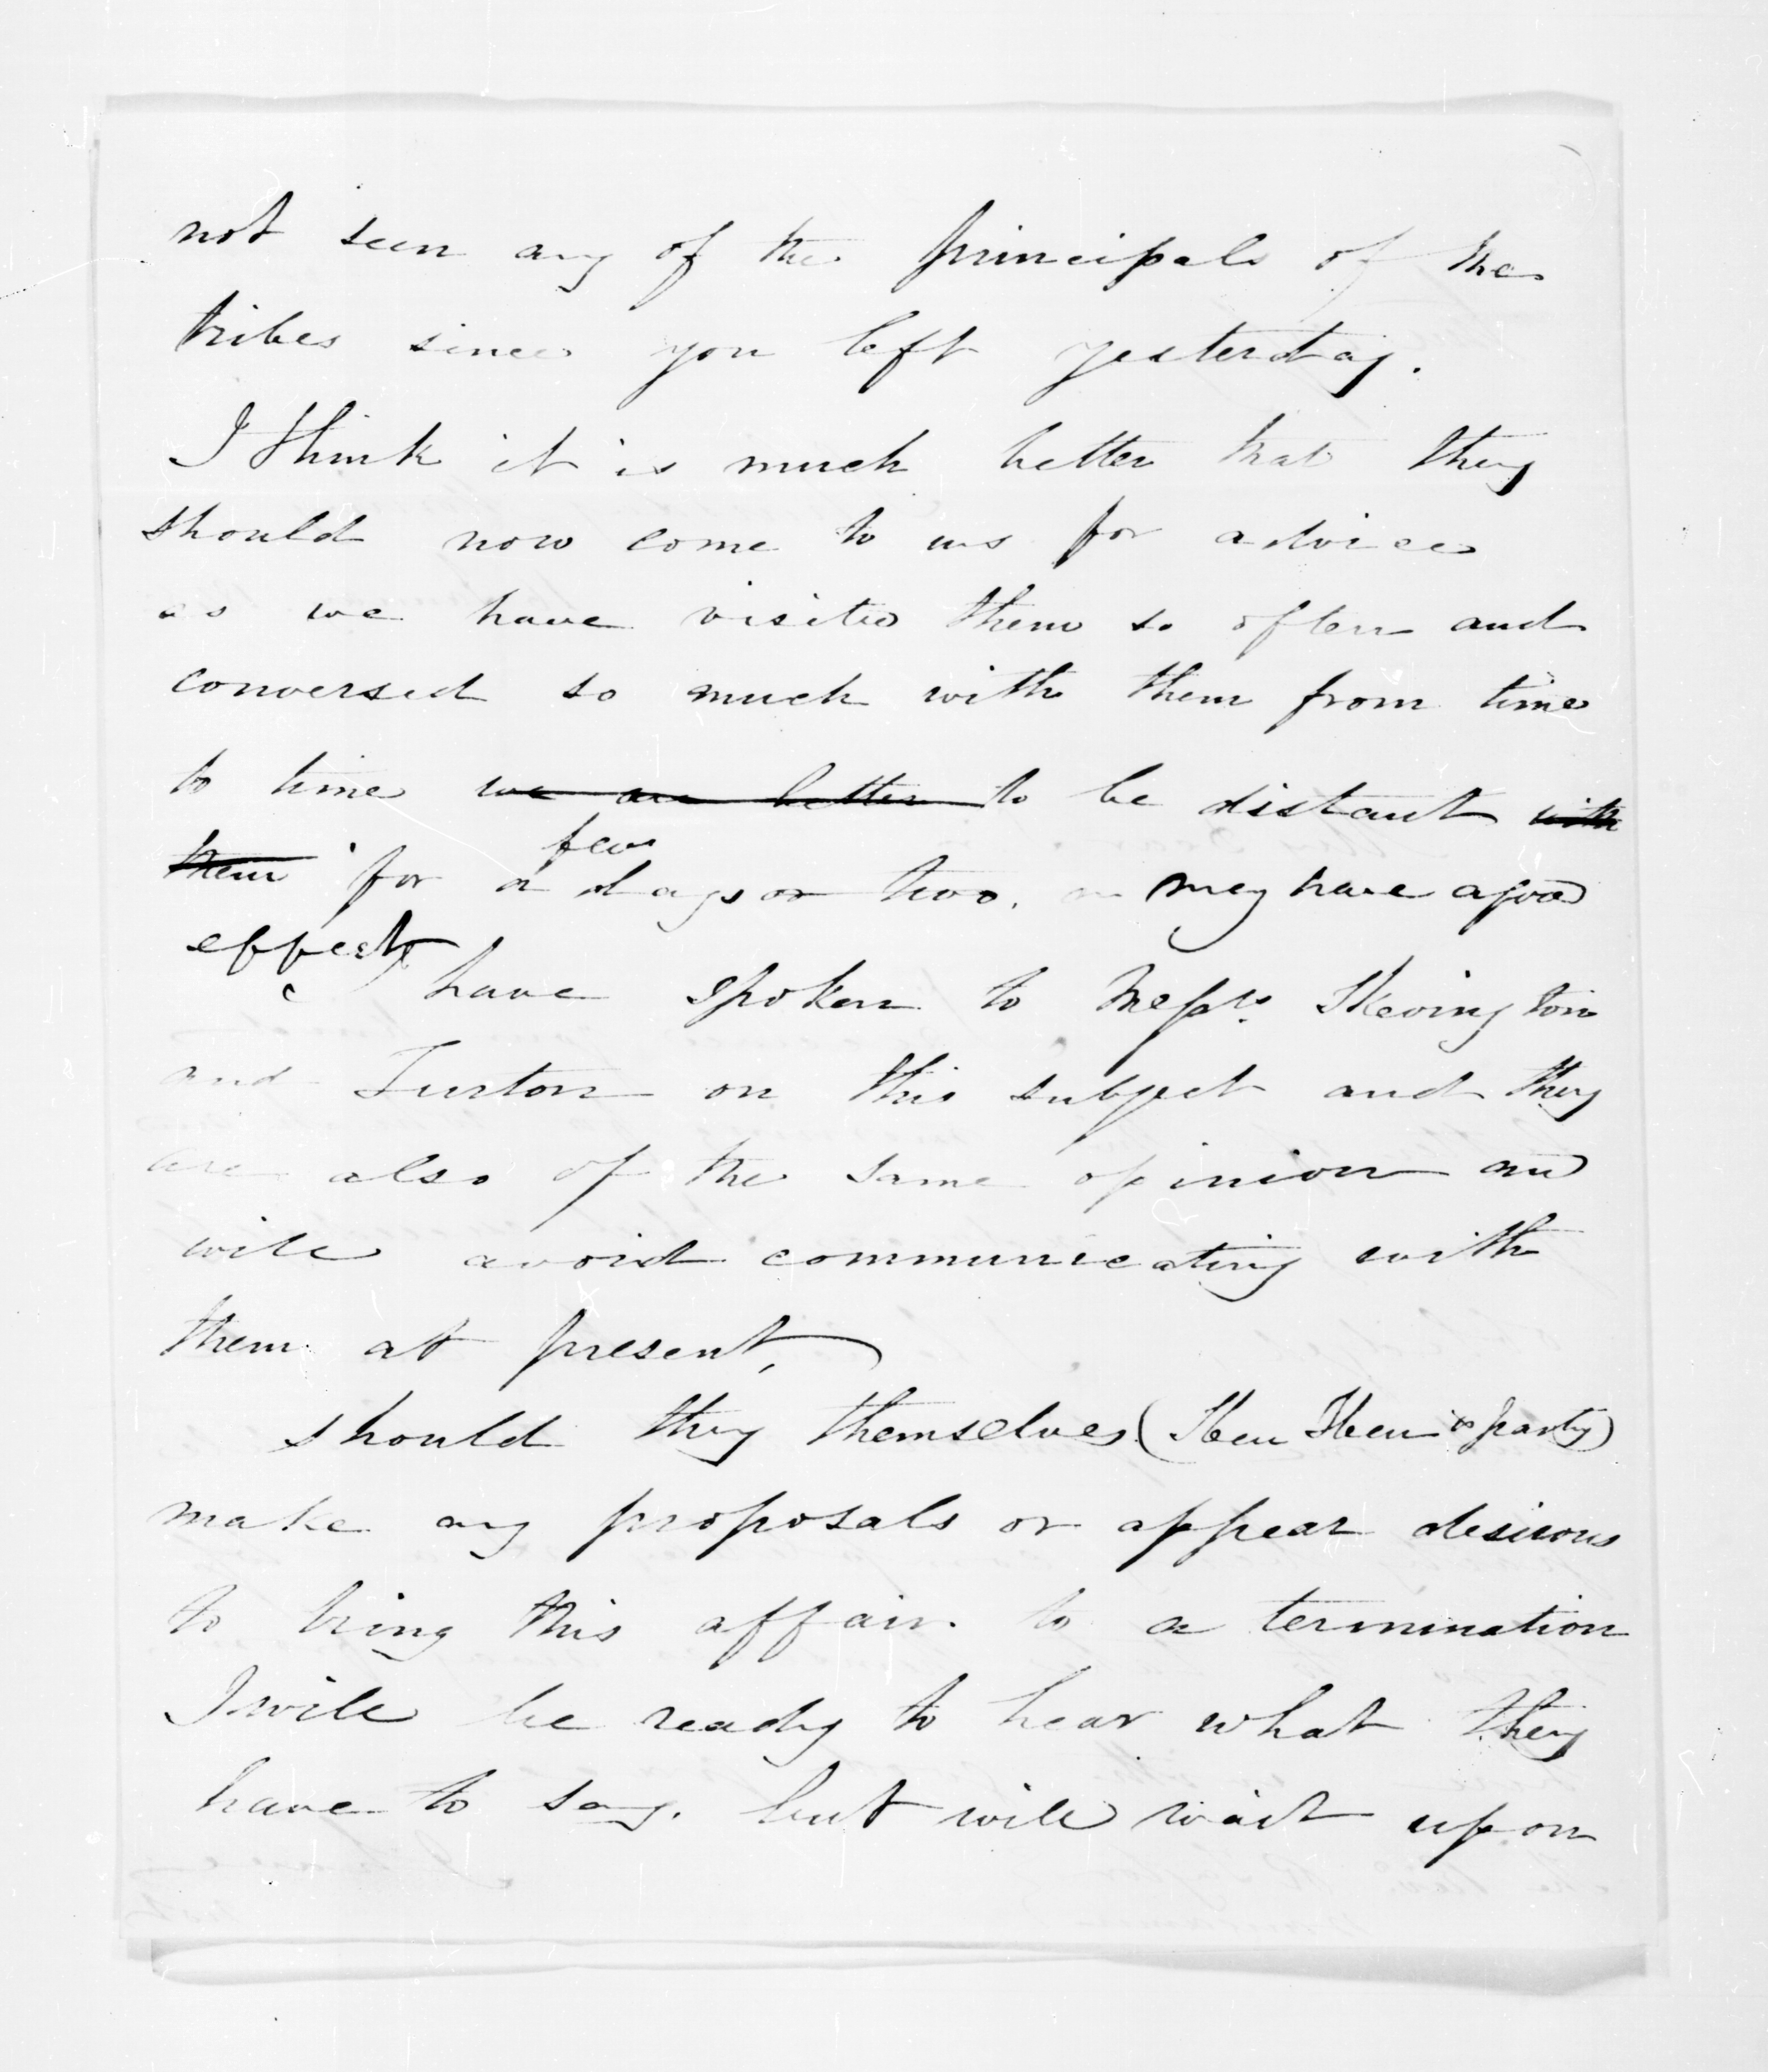 not seen any of the principals of the
tribes since you left yesterday.
I think it is much better that they
should now come to us for advice
as we have visited them so often and
conversed so much with them from time
to time we are better to be distant with
few
them for a days or two. may have a good
effect
I have spoken to Messrs. Skevington
and Turton on this subject and they
are also of the same opinion and
will avoid communicating with
them at present,
should they themselves (& party)
make any proposals or appear desirous
to bring this affair to a termination
I will be ready to hear what they
have to say. but will wait upon